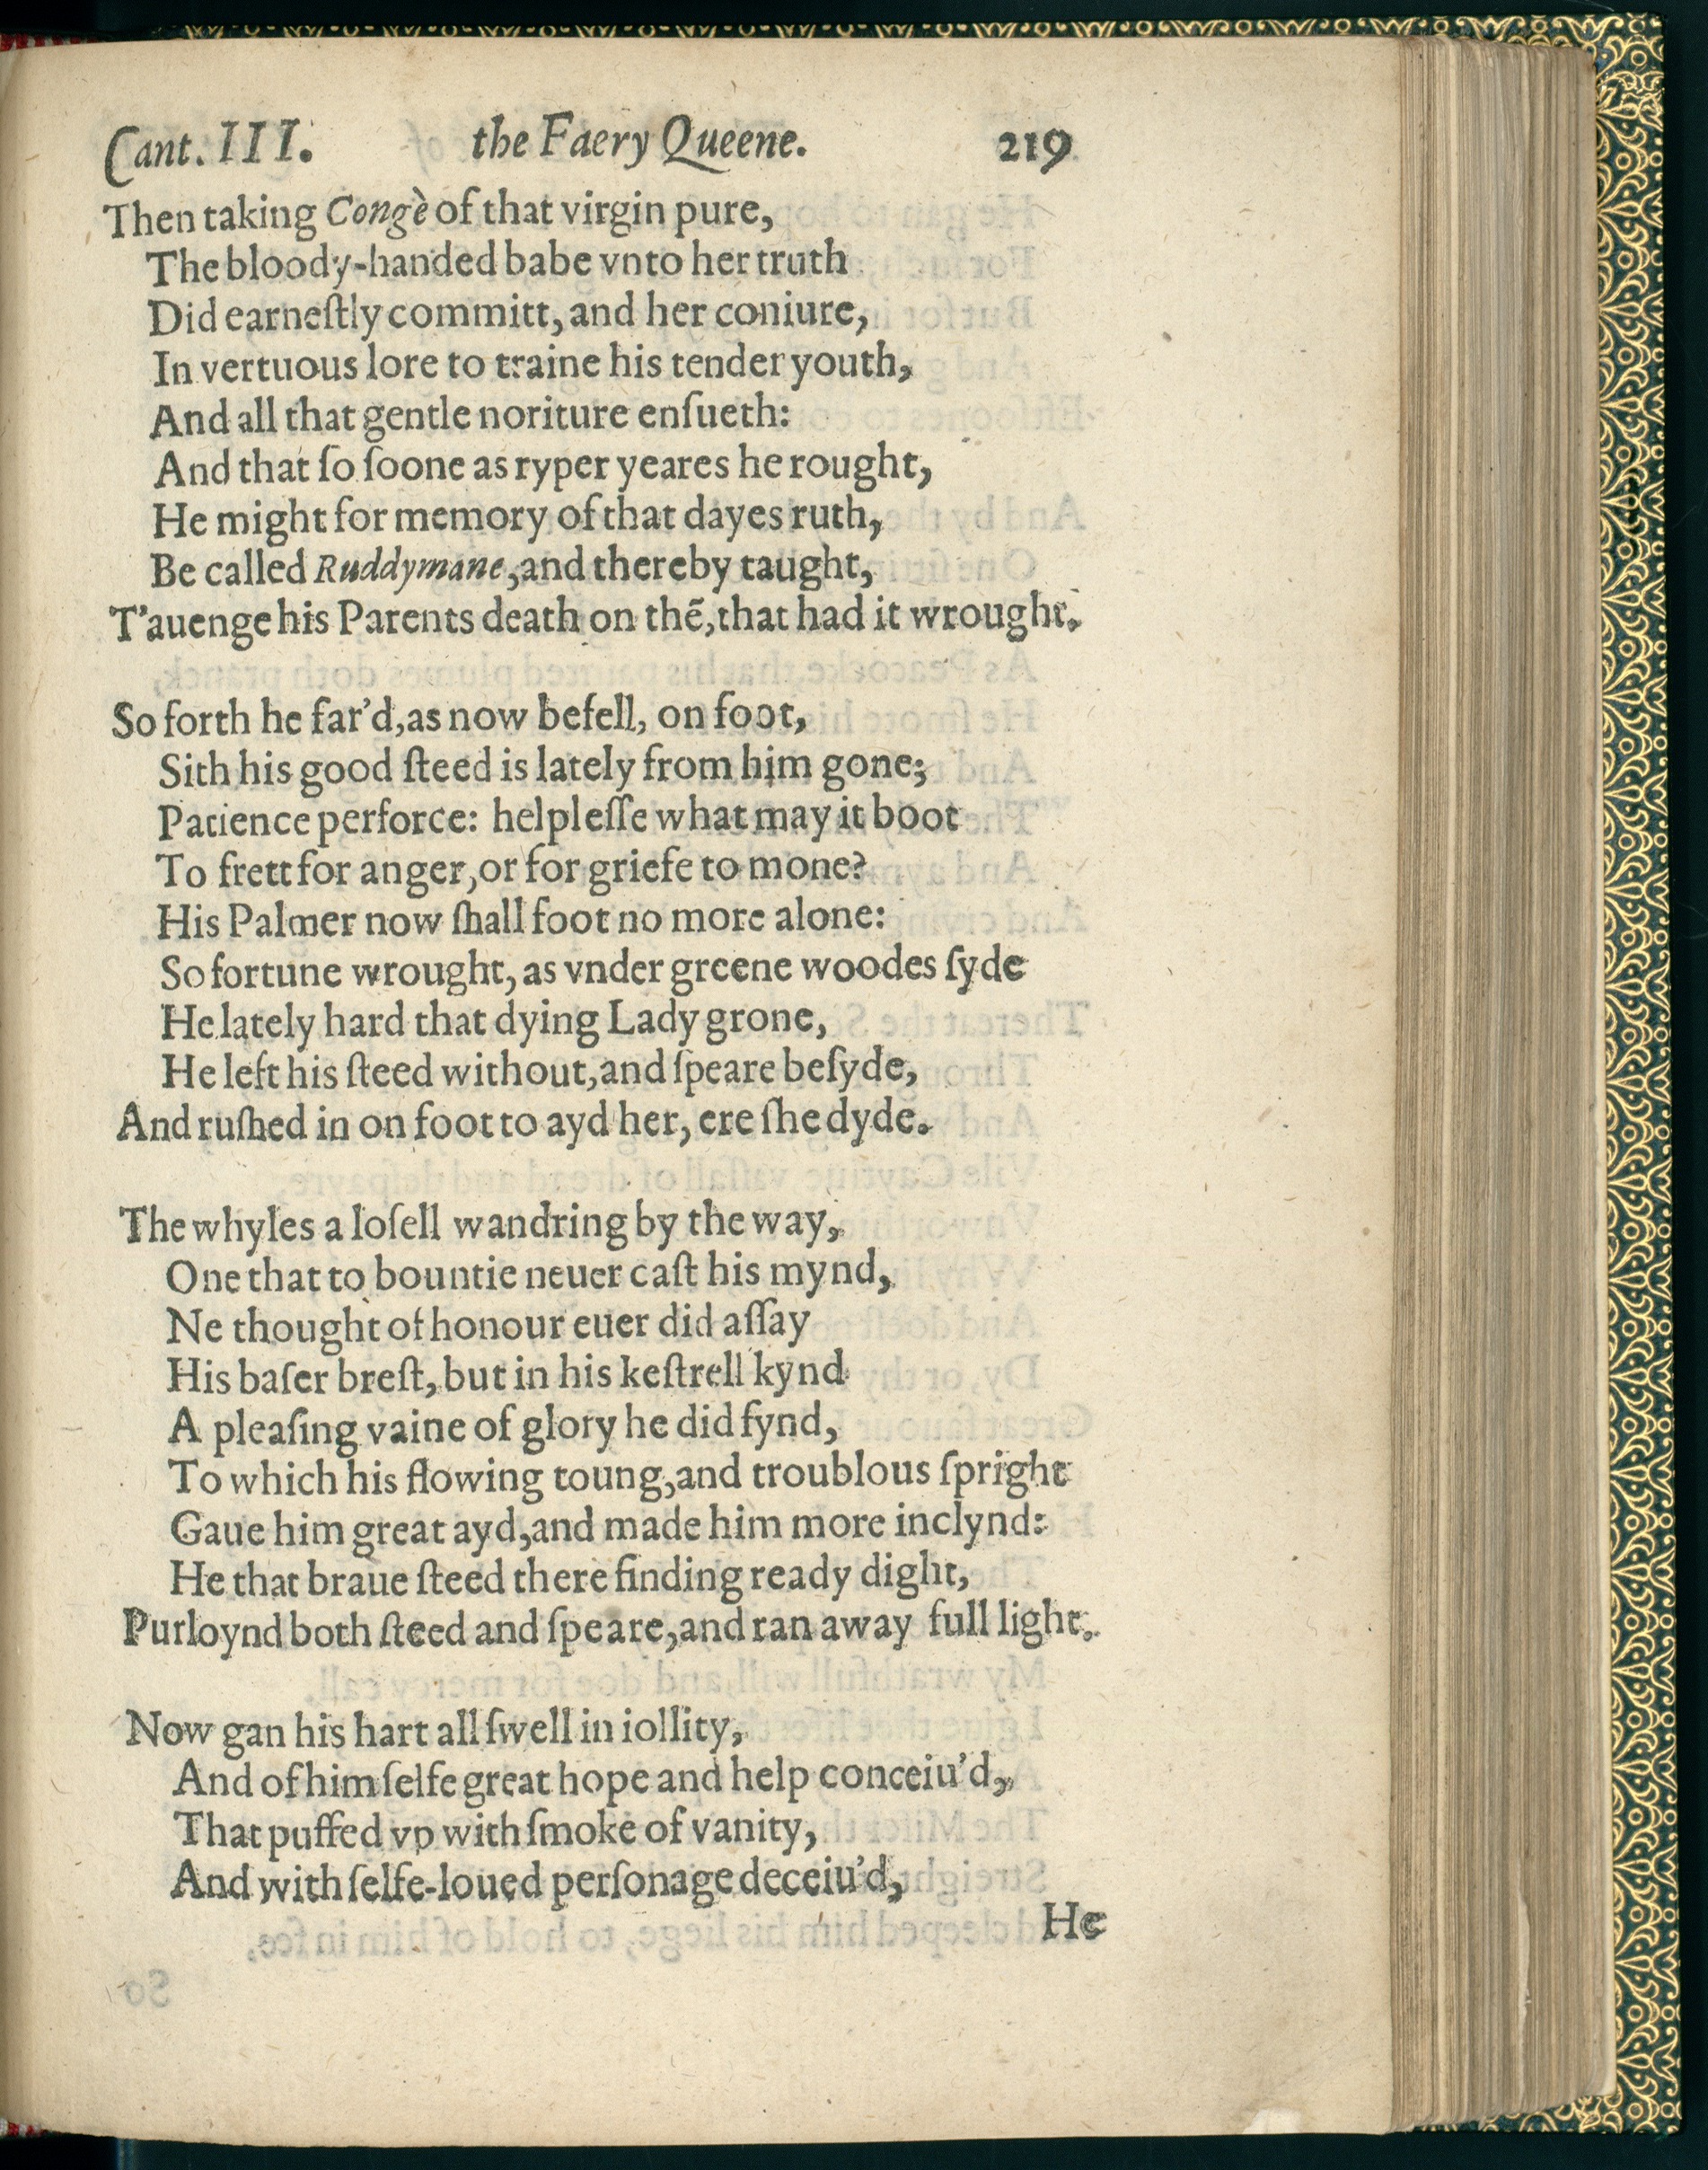 Cant. III. the Faery Queene. 219
Then taking Congè of that virgin pure,
The bloody-handed babe vnto her truth
Did earneſtly committ, and her coniure,
In vertuous lore to traine his tender youth,
And all that gentle noriture enſueth:
And that ſo ſoone as ryper yeares he rought,
He might for memory of that dayes ruth,
Be called Ruddymane, and thereby taught,
T'auenge his Parents death on thẽ, that had it wrought.
So forth he far'd, as now befell, on foot,
Sith his good ſteed is lately from him gone;
Patience perforce: helpleſſe what may it boot
To frett for anger, or for griefe to mone?
His Palmer now ſhall foot no more alone:
So fortune wrought, as vnder greene woodes ſyde
He lately hard that dying Lady grone,
He left his ſteed without, and ſpeare beſyde,
And ruſhed in on foot to ayd her, ere ſhe dyde.
The whyles a loſell wandring by the way,
One that to bountie neuer caſt his mynd,
Ne thought of honour euer did aſſay
His baſer breſt, but in his keſtrell kynd
A pleaſing vaine of glory he did fynd,
To which his flowing toung, and troublous ſpright
Gaue him great ayd, and made him more inclynd:
He that braue ſteed there finding ready dight,
Purloynd both ſteed and ſpeare, and ran away full light.
Now gan his hart all ſwell in iollity,
And of himſelfe great hope and help conceiu'd,
That puffed vp with ſmoke of vanity,
And with ſelfe-loued perſonage deceiu'd,
He